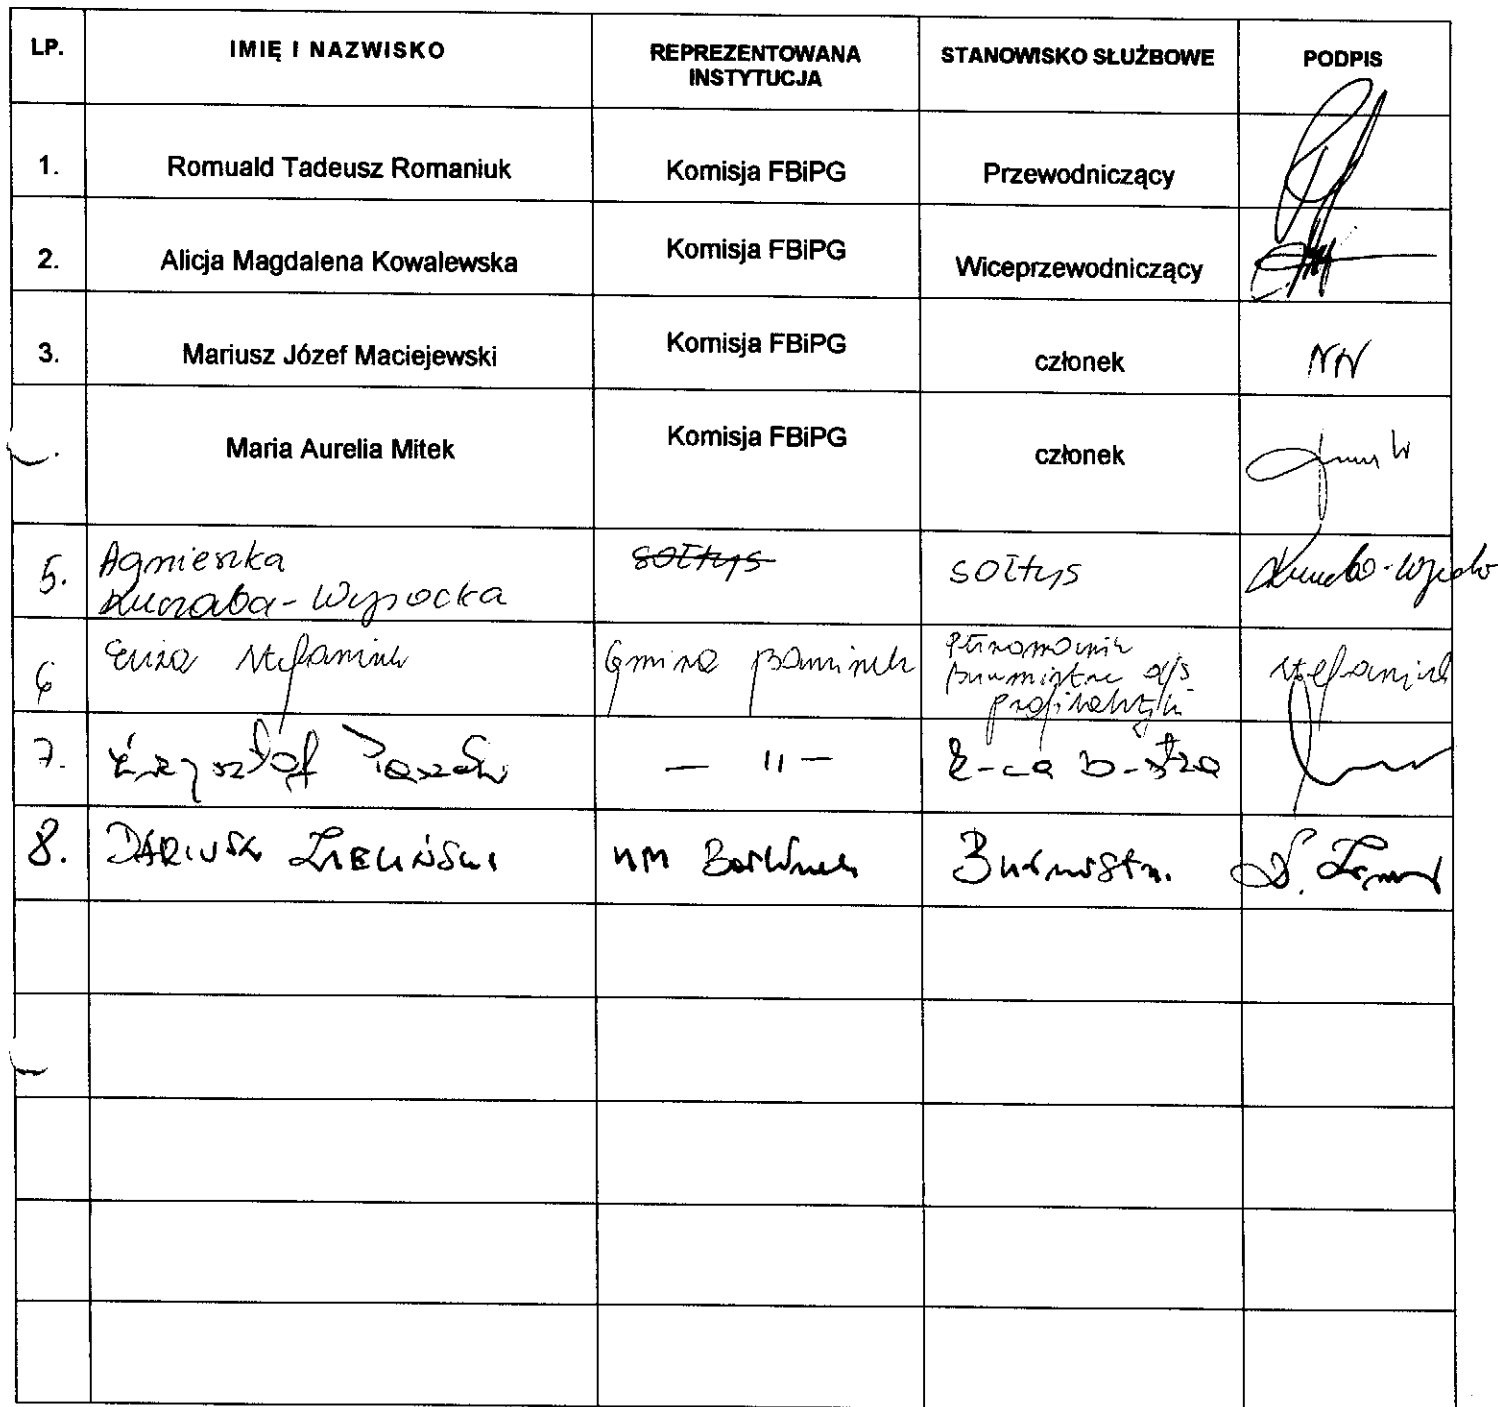 LP. IMIĘ I NAZWISKO REPREZENTOWANA INSTYTUCJA STANOWISKO SŁUŻBOWE PODPIS
1. Romuald Tadeusz Romaniuk Komisja FBiPG Przewodniczący
2. Alicja Magdalena Kowalewska Komisja FBiPG Wiceprzewodniczący
3. Mariusz Józef Maciejewski Komisja FBiPG członek NN
Maria Aurelia Mitek Komisja FBiPG członek
5. Agnieszka sołtys sołtys
Kuczaba-Wysocka
6 Eliza Stefaniuk Gmina Barlinek Pełnomocnik Stefaniuk
Burmistrza d/s
profilaktyki
7. Krzysztof — 11 — Z-ca B-strza
8. DARIUSZ ZIELIŃSKI UM Barlinek Burmistrz.